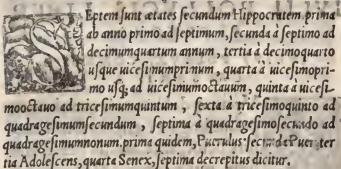 SEptem sunt ætates secundum Hippocratem. prima
ab anno primo ad septimum, secunda à septimo ad
decimumquartum annum, tertia à decimoquarto
usque uicesimumprimum, quarta à uicesimopri-
mo usq; ad uicesimumoctauum, quinta à uicesi-
mooctauo ad tricesimumquintum, sexta à tricesimoquinto ad
quadragesimumsecundum, septima à quadragesimosecundo ad
quadragesimumnonum. prima quidem, Puerulus secunda Puer ter
tia Adolescens, quarta Senex, septima decrepitus dicitur.